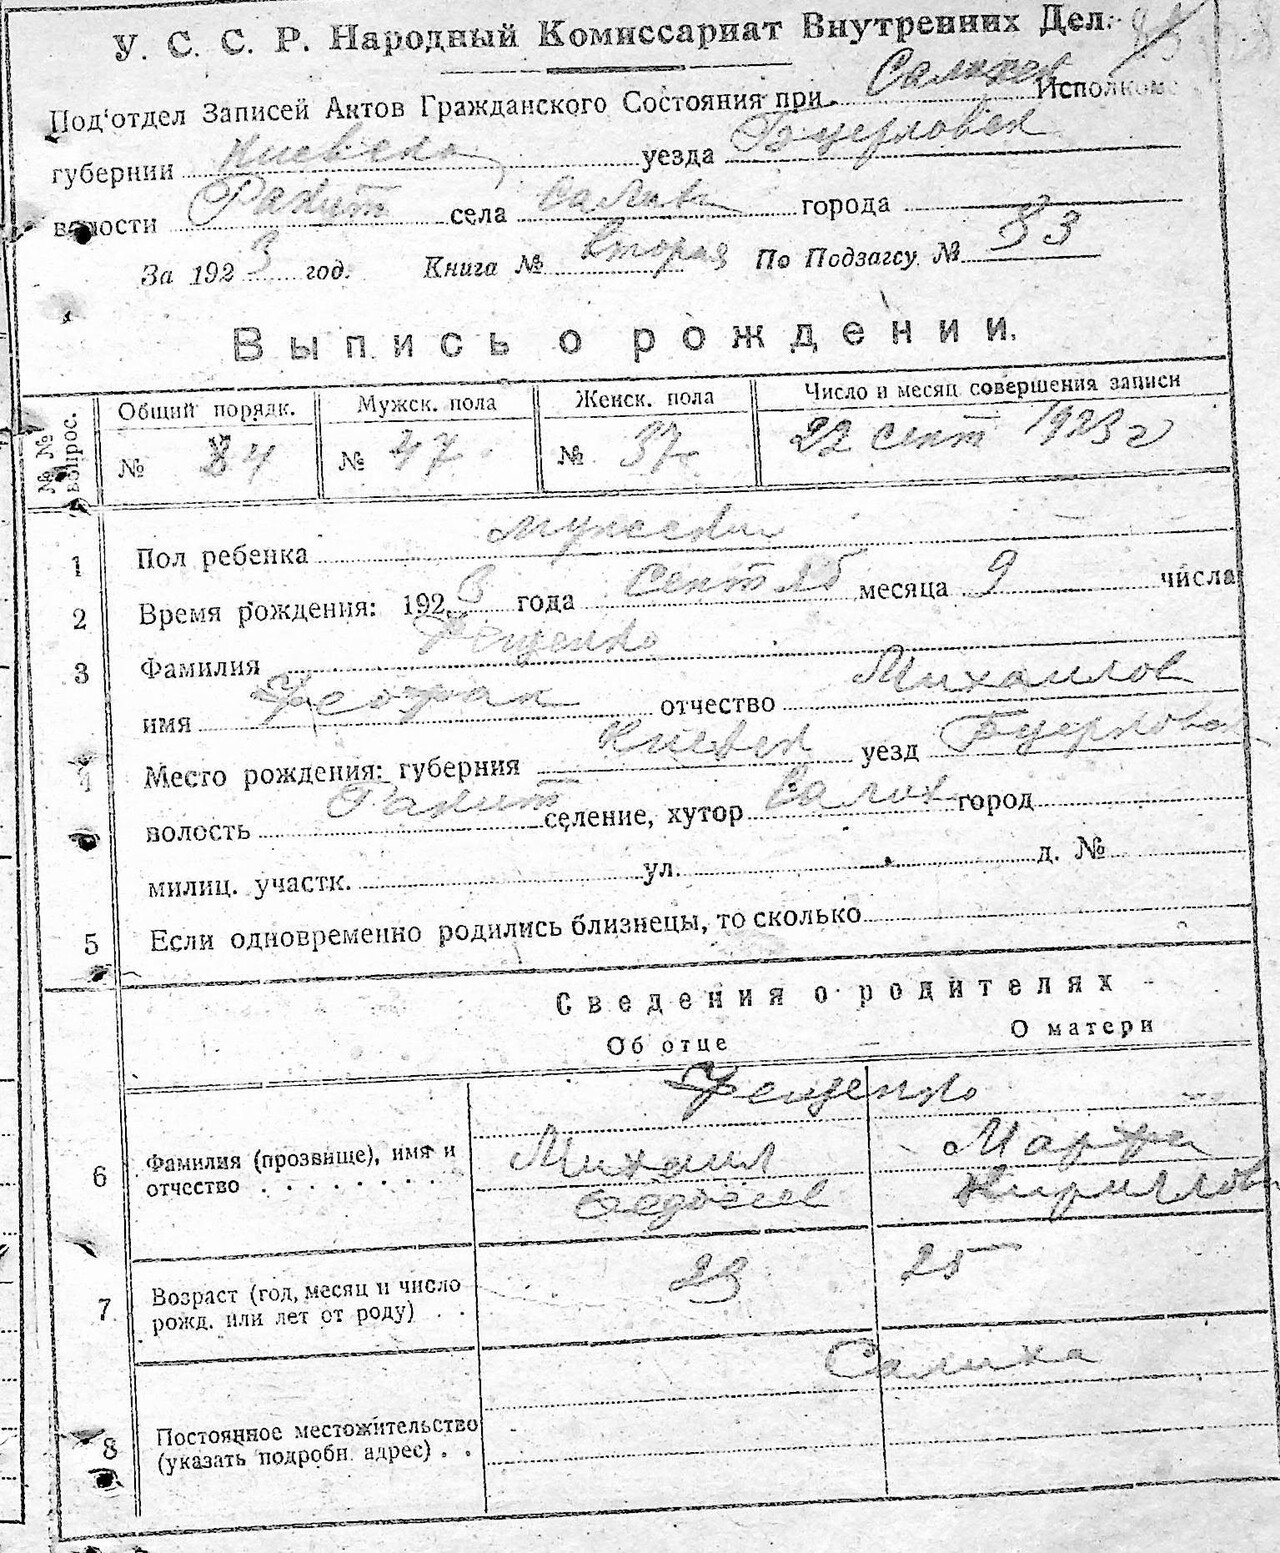 У. С. С. Р. Народный Комиссариат Внутренних Дел.
Под'отдел Записей Актов Гражданского Состояния при Исполкоме
губернии Киевска уезда Бцерковск
волости Ракит села Салих города
За 1923 год. Книга № вторая По Подзагсу № 83
Выпись о рождении.
№ № вопрос. Общий порядк. Мужск. пола Женск. пола Число и месяц совершения записи
№ 84 № 47 № 37 22 сент 1923 г
1 Пол ребенка
2 Время рождения: 1923 года Сентяб месяца 9 числа
3 Фамилия Фещенко
имя Феофан отчество Михаилов
4 Место рождения: губерния Киевск уезд Бцерковск
волость Ракит селение, хутор Салих город
милиц. участк. ул. д. №
5 Если одновременно родились близнецы, то сколько
Сведения о родителях
Об отце О матери
Фещенко
6 Фамилия (прозвище), имя и отчество Михаил Марфа
Кириллов
7 Возраст (год, месяц и число рожд. или лет от роду) 23 25
Салиха
8 Постоянное местожительство (указать подробн. адрес)